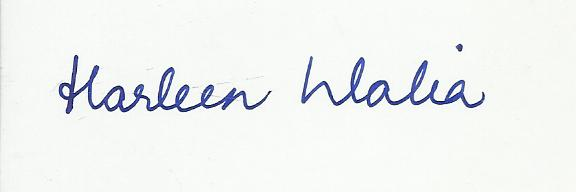 Harleen Walia